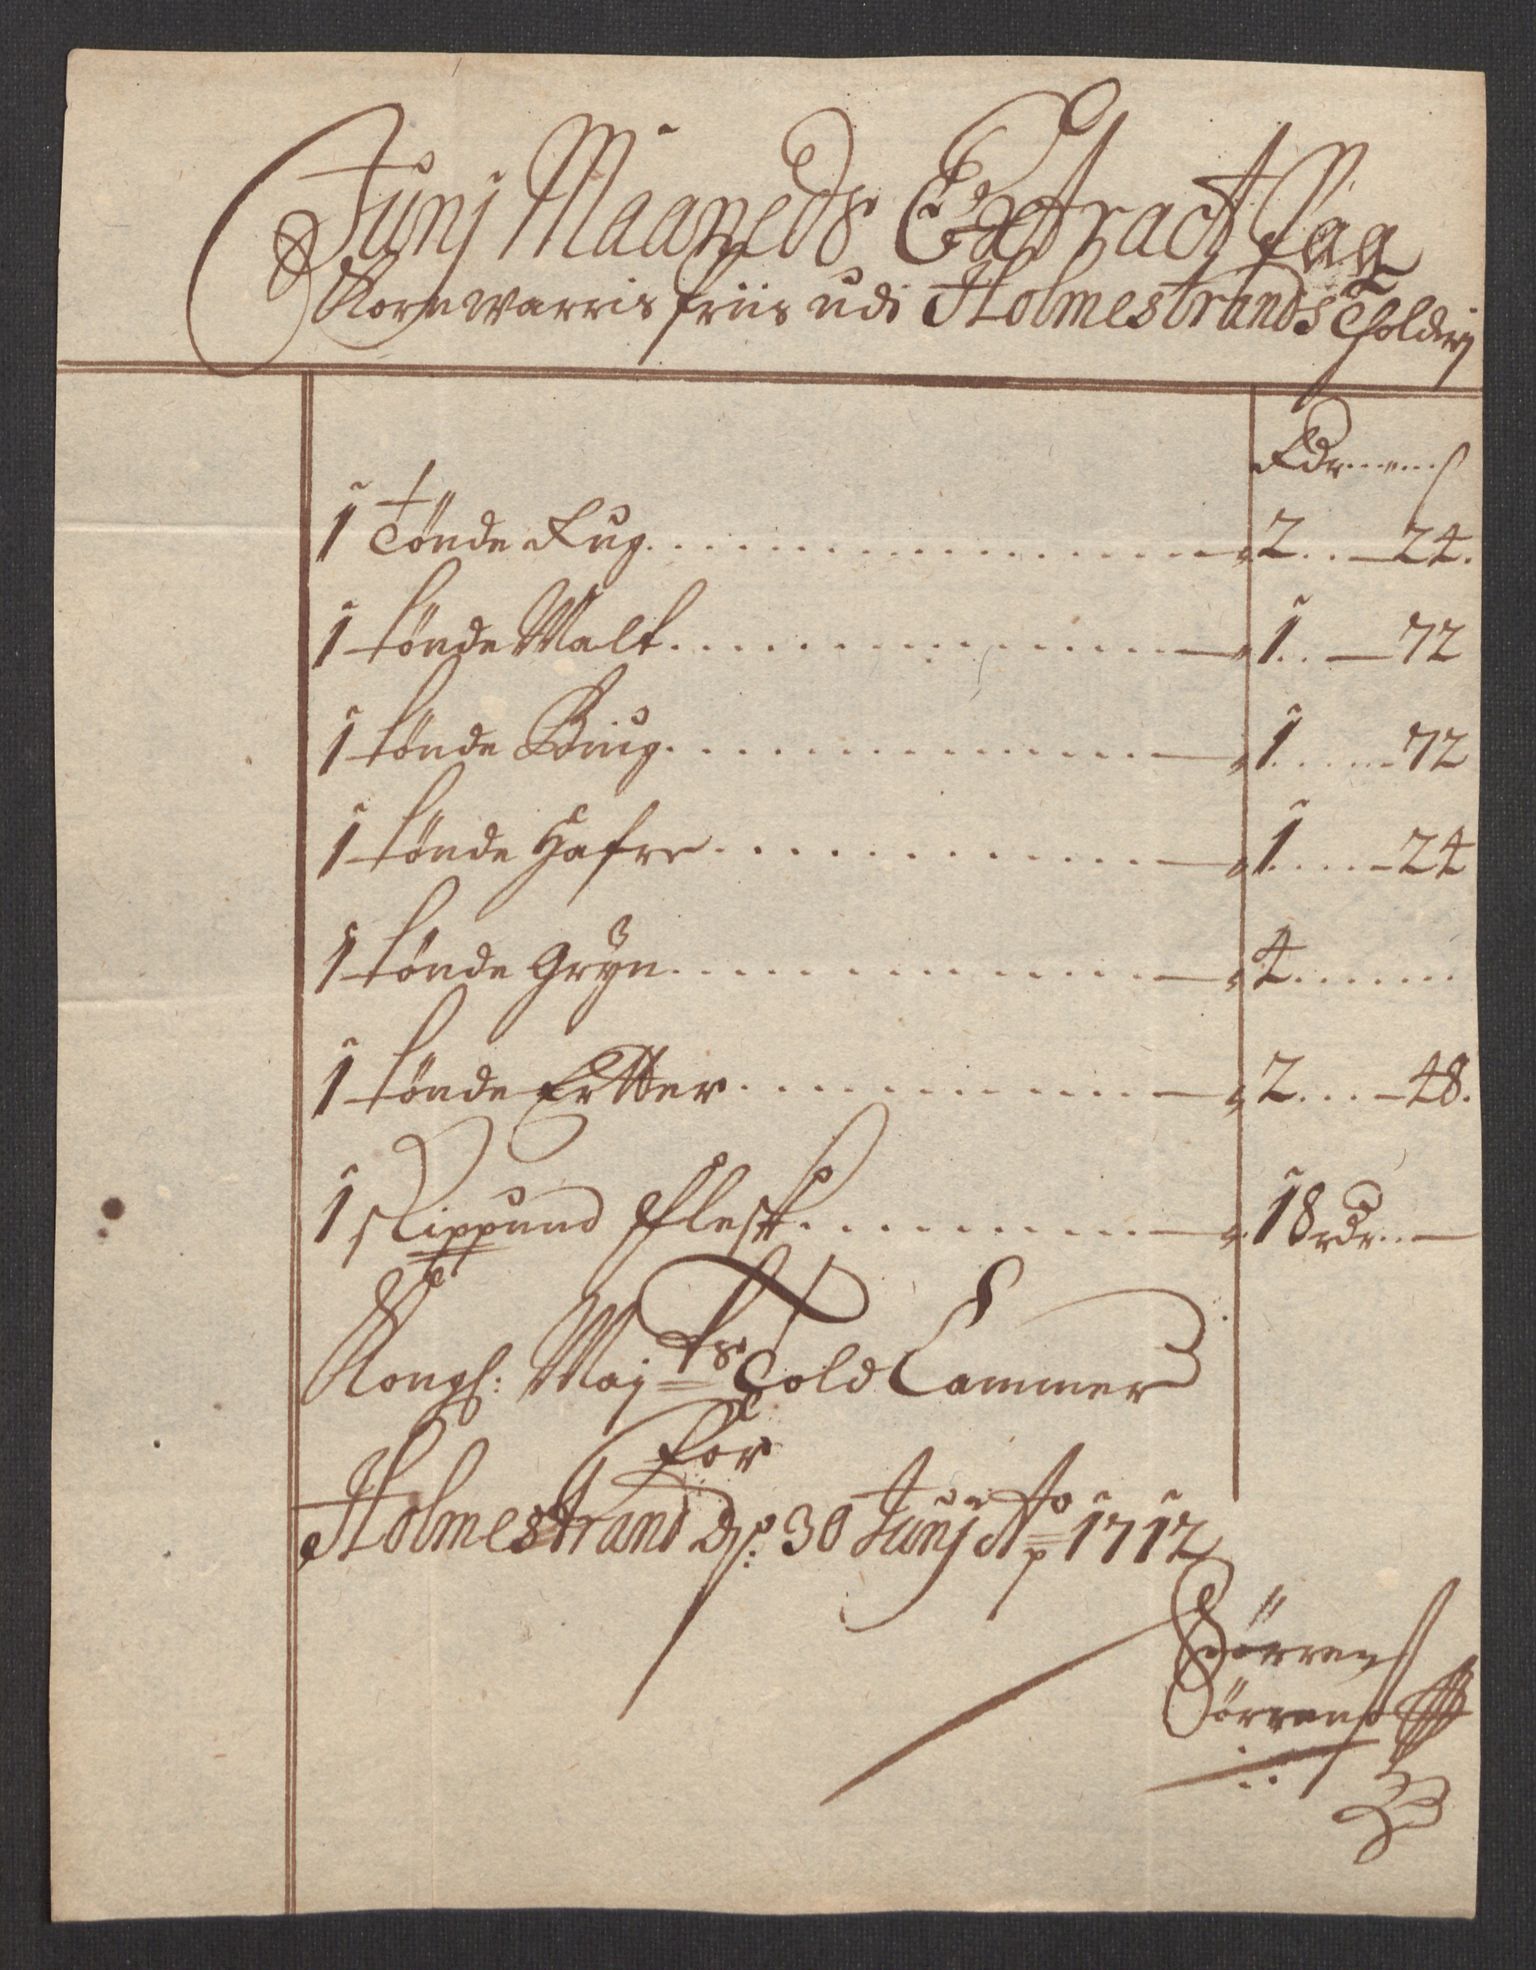 Junj Maaneds Extract Paa
Kornwarris Priis udi Holmestrands Tolderj
Rdr ... s
1 Tønde Rug 2 24.
1 tønde Malt 1 72
1 tønde Biug 1 72
1 tønde Hafre 1 24
1 tønde Gryn 4
1 tønde Ertter 2 48.
1 skippund Flesk 18 rdr
Kongl: Maj ts Told Cammer
for
Holmestrand d: 30 Junj Ao 1712
Sørren
Sørrens